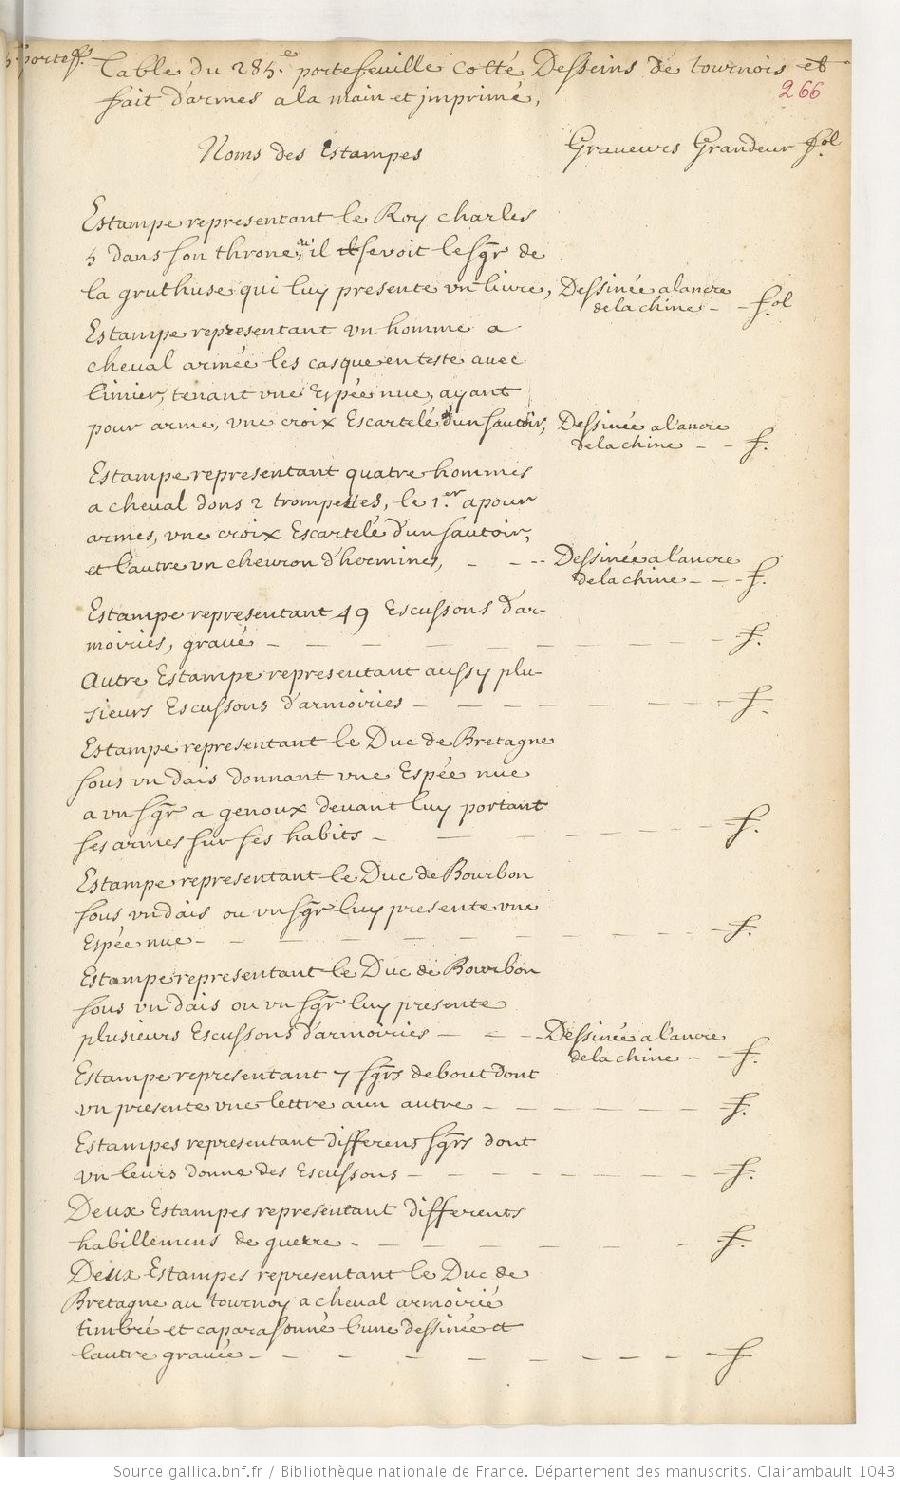 porteff.
Table du 285.e portefeuille cotté Desseins de tournois et
fait d'armes a la main et jmprimé,
266
Noms des Estampes
Graveurs Grandeur fol
Estampe representant le Roy charles
5 dans son throne, ou il resevoit le sgr de
la gruthuse qui luy presente vn livre, Dessinée a lancre
de la chine - - fol
Estampe representant vn homme a
cheval armée les casque en teste avec
timier, tenant vne Espée nue, ayant
pour arme, vne croix Escartelé d'un sautoir, Dessinée a lancre
de la chine - - f.
Estampe representant quatre hommes
a cheval dons 2 trompettes, le 1.er a pour
armes, vne croix Escartelé d'un sautoir,
et l'autre vn chevron d'hermines, - - - Dessinée a l'ancre
de la chine - - - f.
Estampe representant 49 Escussons d'ar-
moiries, gravé - - - - - - - - f.
Autre Estampe representant aussy plu-
sieurs Escussons d'armoiries - - - - - - - - f.
Estampe representant le Duc de Bretagne
sous vn dais donnant vne Espée nue
a vn sgr a genoux devant luy portant
ses armes sur ses habits - - - - - - - f.
Estampe representant le Duc de Bourbon
sous vn dais ou vn sgr luy presente vne
Espée nue - - - - - - - - - - f.
Estampe representant le Duc de Bourbon
sous vn dais ou vn sgr luy presente
plusieurs Escussons d'armoiries - - - Dessinée a l'ancre
de la chine - - f.
Estampe representant 7 sgrs debout dont
vn presente vne lettre a un autre - - - - - - f.
Estampes representant differens sgrs dont
vn leurs donne des Escussons - - - - - - - - f.
Deux Estampes representant differents
habillemens de guerre - - - - - - - - f.
Deux Estampes representant le Duc de
Bretagne au tournoy a cheval armoirié
timbré et caparassonné l'une dessinée et
lautre gravée - - - - - - - - - f
Source gallica.bnf.fr / Bibliothèque nationale de France. Département des manuscrits. Clairambault 1043